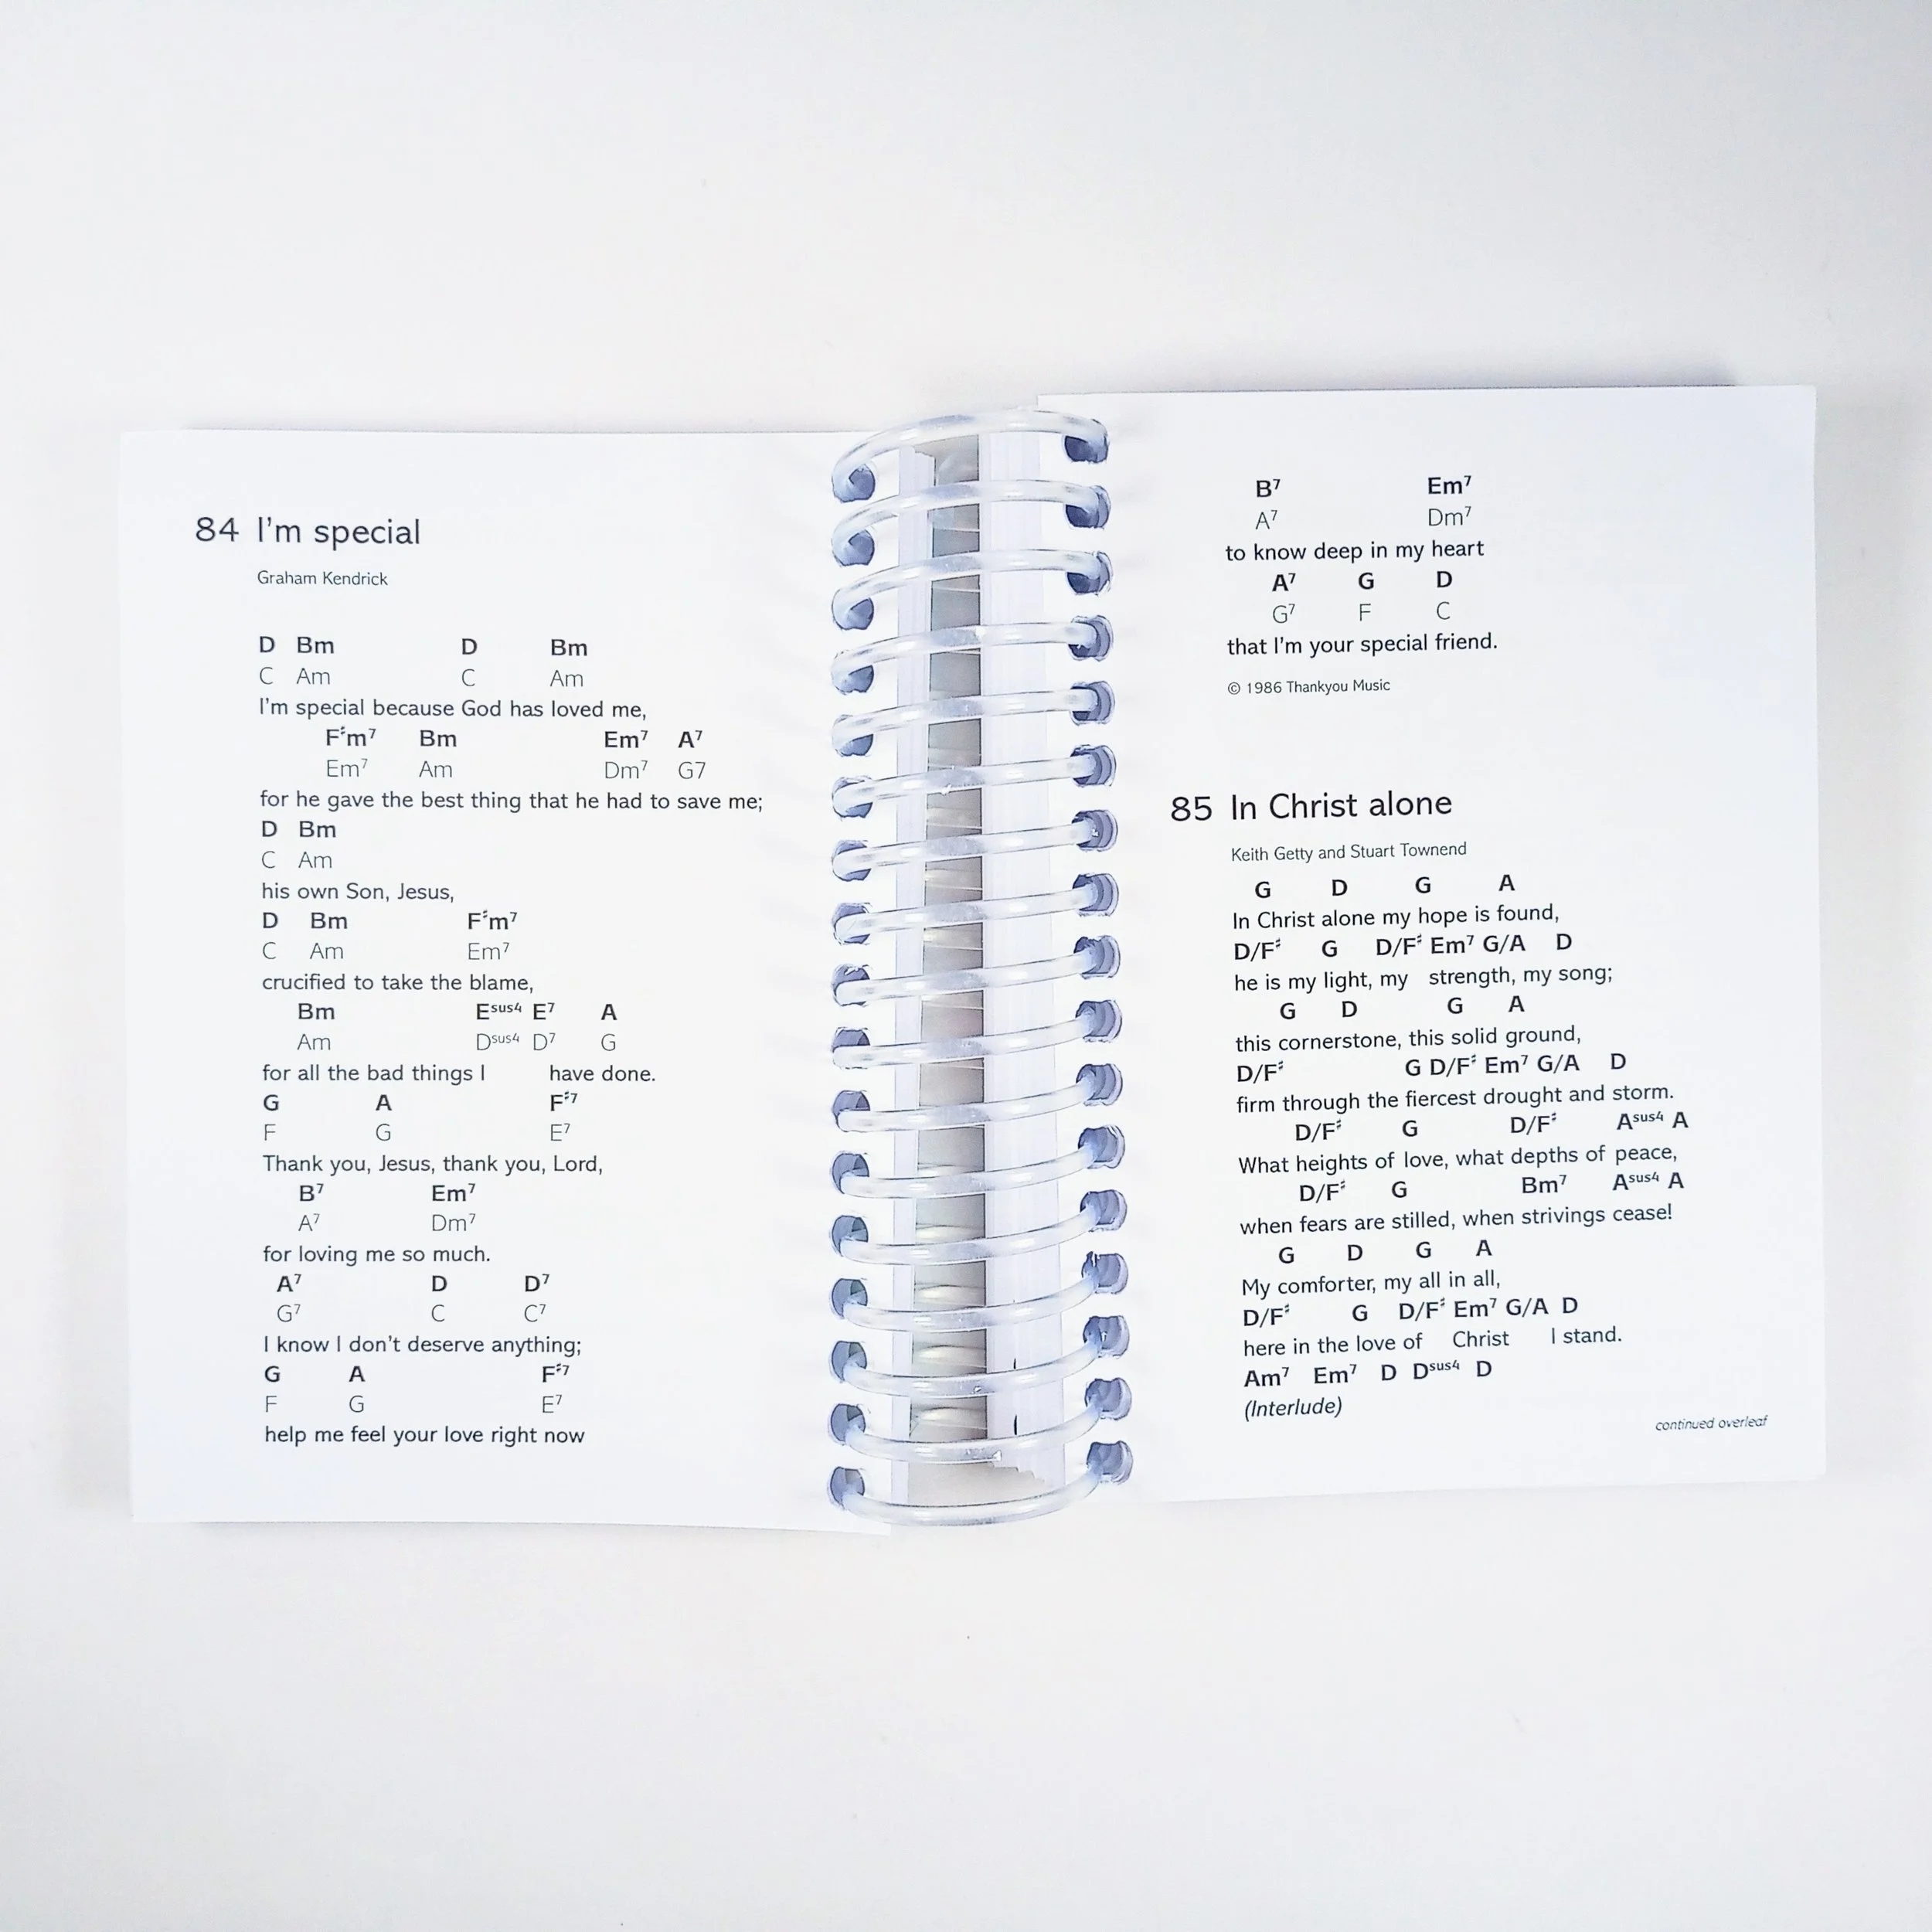 84 I'm special
Graham Kendrick
D Bm D Bm
C Am C Am
I'm special because God has loved me,
F♯m7 Bm Em7 A7
Em7 Am Dm7 G7
for he gave the best thing that he had to save me;
D Bm
C Am
his own Son, Jesus,
D Bm F♯m7
C Am Em7
crucified to take the blame,
Bm Esus4 E7 A
Am Dsus4 D7 G
for all the bad things I have done.
G A F♯7
F G E7
Thank you, Jesus, thank you, Lord,
B7 Em7
A7 Dm7
for loving me so much.
A7 D D7
G7 C C7
I know I don't deserve anything;
G A F♯7
F G E7
help me feel your love right now
B7 Em7
A7 Dm7
to know deep in my heart
A7 G D
G7 F C
that I'm your special friend.
© 1986 Thankyou Music
85 In Christ alone
Keith Getty and Stuart Townend
G D G A
In Christ alone my hope is found,
D/F♯ G D/F♯ Em7 G/A D
he is my light, my strength, my song;
G D G A
this cornerstone, this solid ground,
D/F♯ G D/F♯ Em7 G/A D
firm through the fiercest drought and storm.
D/F♯ G D/F♯ Asus4 A
What heights of love, what depths of peace,
D/F♯ G Bm7 Asus4 A
when fears are stilled, when strivings cease!
G D G A
My comforter, my all in all,
D/F♯ G D/F♯ Em7 G/A D
here in the love of Christ I stand.
Am7 Em7 D Dsus4 D
(Interlude)
continued overleaf